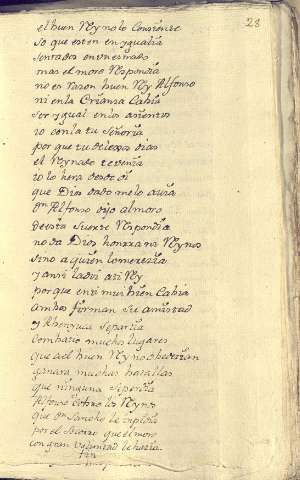 28
el buen Rey no lo Consiente
so que esten en ygualdia
sentados en on estrado
mas el moro Respondia
no es Razon buen Rey Alfonso
ni en la Crianza Cabia
ser ygual en los asientos
io con la tu Señoria
por que tu de
el Reynado te venia
io lo hera desde oi
que Dios dado me lo avia
Dn Alfonso dijo al moro
desta suerte Respondia
no da Dios honrra ni Reynos
sino a quien lo merezia
y ansi la di a ti Rey
por que en ti mui bien Cabia
ambos forman su amistad
y Rhenzuca se partia
tomaron muchos lugares
que a el buen Rey no obedezian
ganara muchas batallas
que ninguna se perdia
Alfonso cobro los Reynos
que Dn Sancho le
por el Socorro que el moro
con gran voluntad le hazia
fin